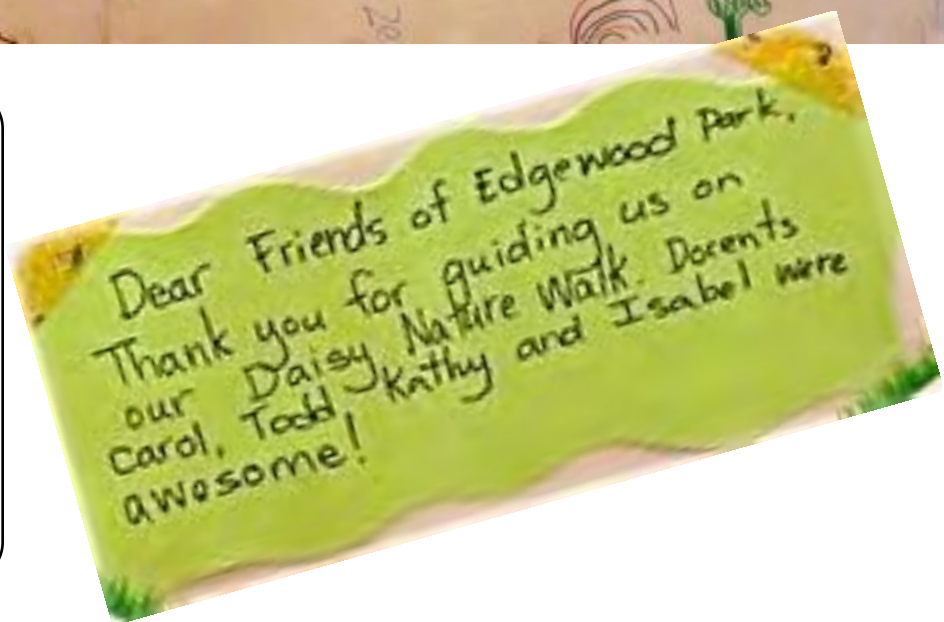 Dear Friends of Edgewood Park,
Thank you for guiding us on
our Daisy Nature Walk. Docents
Carol, Todd, Kathy and Isabel were
awosome!